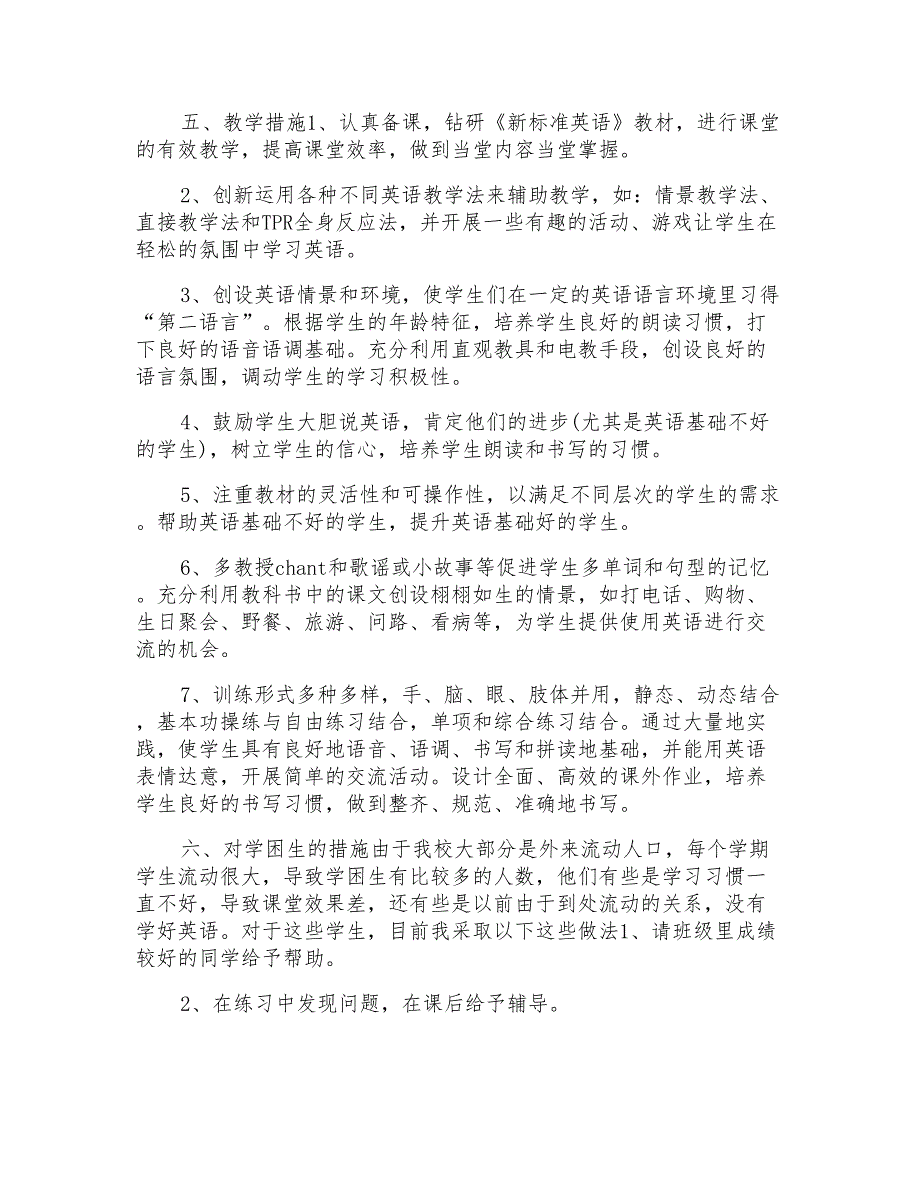 五、教学措施1、认真备课，钻研《新标准英语》教材，进行课堂
的有效教学，提高课堂效率，做到当堂内容当堂掌握。
2、创新运用各种不同英语教学法来辅助教学，如：情景教学法、
直接教学法和TPR全身反应法，并开展一些有趣的活动、游戏让学生在
轻松的氛围中学习英语。
3、创设英语情景和环境，使学生们在一定的英语语言环境里习得
“第二语言”。根据学生的年龄特征，培养学生良好的朗读习惯，打
下良好的语音语调基础。充分利用直观教具和电教手段，创设良好的
语言氛围，调动学生的学习积极性。
4、鼓励学生大胆说英语，肯定他们的进步(尤其是英语基础不好
的学生)，树立学生的信心，培养学生朗读和书写的习惯。
5、注重教材的灵活性和可操作性，以满足不同层次的学生的需求
。帮助英语基础不好的学生，提升英语基础好的学生。
6、多教授chant和歌谣或小故事等促进学生多单词和句型的记忆
。充分利用教科书中的课文创设栩栩如生的情景，如打电话、购物、
生日聚会、野餐、旅游、问路、看病等，为学生提供使用英语进行交
流的机会。
7、训练形式多种多样，手、脑、眼、肢体并用，静态、动态结合
，基本功操练与自由练习结合，单项和综合练习结合。通过大量地实
践，使学生具有良好地语音、语调、书写和拼读地基础，并能用英语
表情达意，开展简单的交流活动。设计全面、高效的课外作业，培养
学生良好的书写习惯，做到整齐、规范、准确地书写。
六、对学困生的措施由于我校大部分是外来流动人口，每个学期
学生流动很大，导致学困生有比较多的人数，他们有些是学习习惯一
直不好，导致课堂效果差，还有些是以前由于到处流动的关系，没有
学好英语。对于这些学生，目前我采取以下这些做法1、请班级里成绩
较好的同学给予帮助。
2、在练习中发现问题，在课后给予辅导。